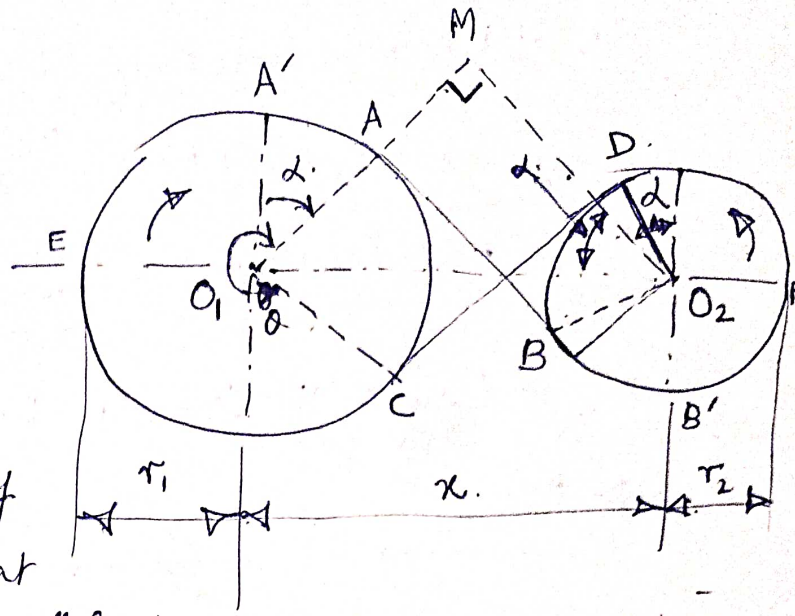 M
A'
A
D.
α.
α.
α
E
O₁
θ
O₂
B
C
B'
r₁
x.
r₂